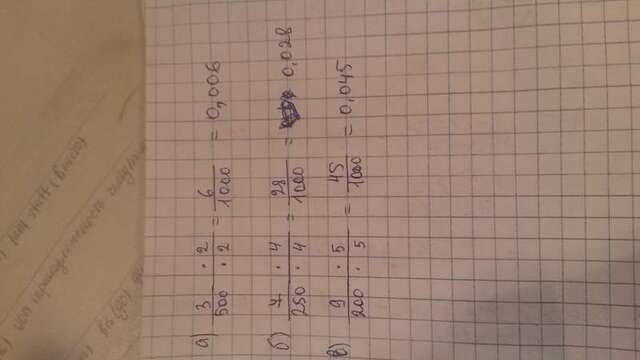 а) 3 · 2 / 500 · 2 = 6 / 1000 = 0,006
б) 7 · 4 / 250 · 4 = 28 / 1000 = 0,028
в) 9 · 5 / 200 · 5 = 45 / 1000 = 0,045